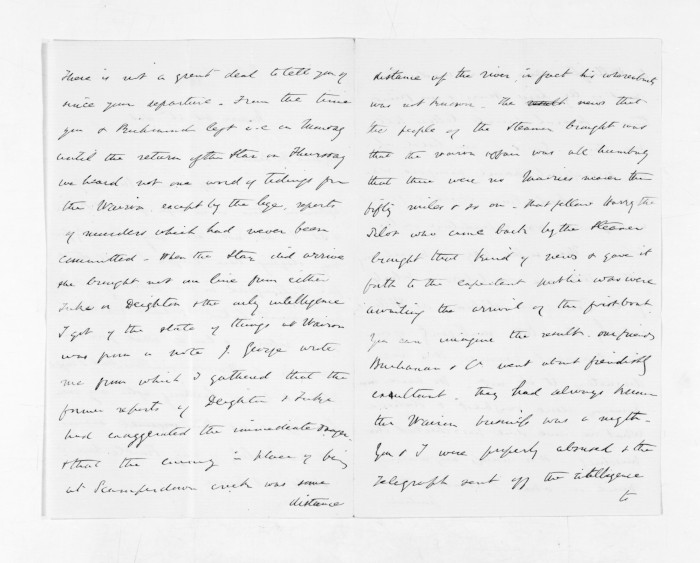 There is not a great deal to tell you of
since your departure - From the time
you & Richmond left i.e on Monday
until the return of the Star on Thursday
we heard not one word of tidings from
the Wairoa except by the bye, reports
of murders which had never been
committed - When the Star did arrive
she brought not one line from either
Tuke or Deighton & the only intelligence
I got of the state of things at Wairoa
was from a note J. George wrote
me from which I gathered that the
former reports of Deighton & Tuke
had exaggerated the immediate danger,
& that the enemy in place of being
at Scamperdown creek was some
distance
distance up the river, in fact his whereabouts
was not known. The result news that
the people of the Steamer brought was
that the Wairoa affair was all humbug
that there were no Maories nearer than
fifty miles & so on - that fellow Harry the
Pilot who came back by the Steamer
brought that kind of news & gave it
forth to the expectant public who were
awaiting the arrival of the first boat
You can imagine the result. our friends
Buchanan & Co went about fiendishly
exultant. they had always known
the Wairoa business was a myth -
You & I were properly abused & the
Telegraph sent off the intelligence
to